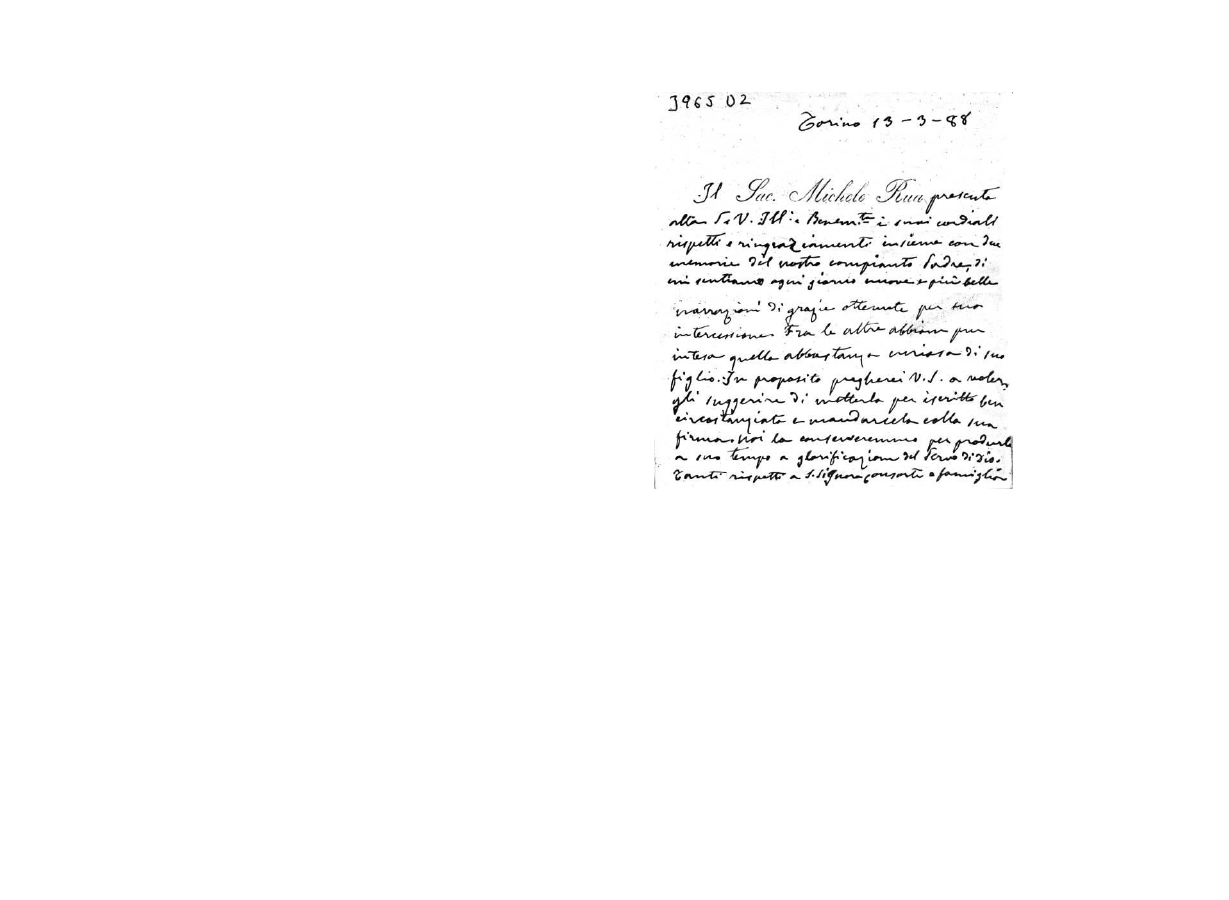 3965 D2
Torino 13-3-88
Il Sac. Michele Rua presenta
alla S. V. Ill. e Benem. i suoi cordiali
rispetti e ringraziamenti insieme con due
memorie del nostro compianto Padre, di
cui sentiamo ogni giorno nuove e più belle
narrazioni di grazie ottenute per sua
intercessione. Fra le altre abbiam pur
intesa quella abbastanza curiosa di suo
figlio. In proposito pregherei V. S. a voler
gli suggerire di metterla per iscritto ben
circostanziata e mandarcela colla sua
firma. Noi la conserveremmo per produrla
a suo tempo a glorificazione del Servo di Dio.
Tanti rispetti a S. Signora consorte e famiglia